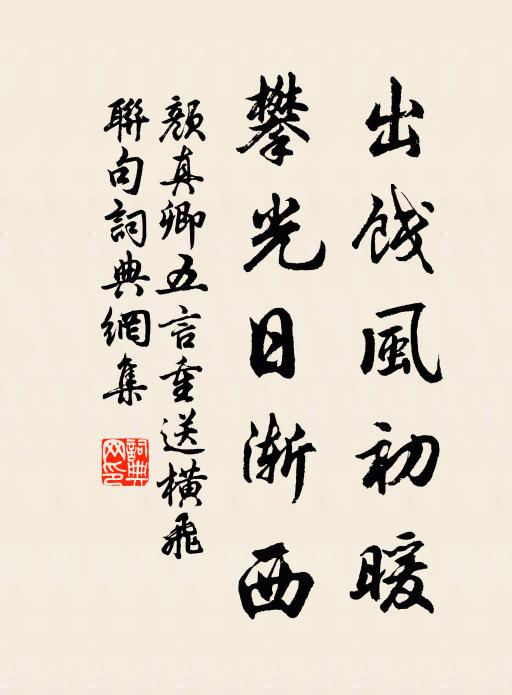 出餞風初暖
攀光日漸西
顏真卿五言重送橫飛
聯句詞典網集
詞典網印